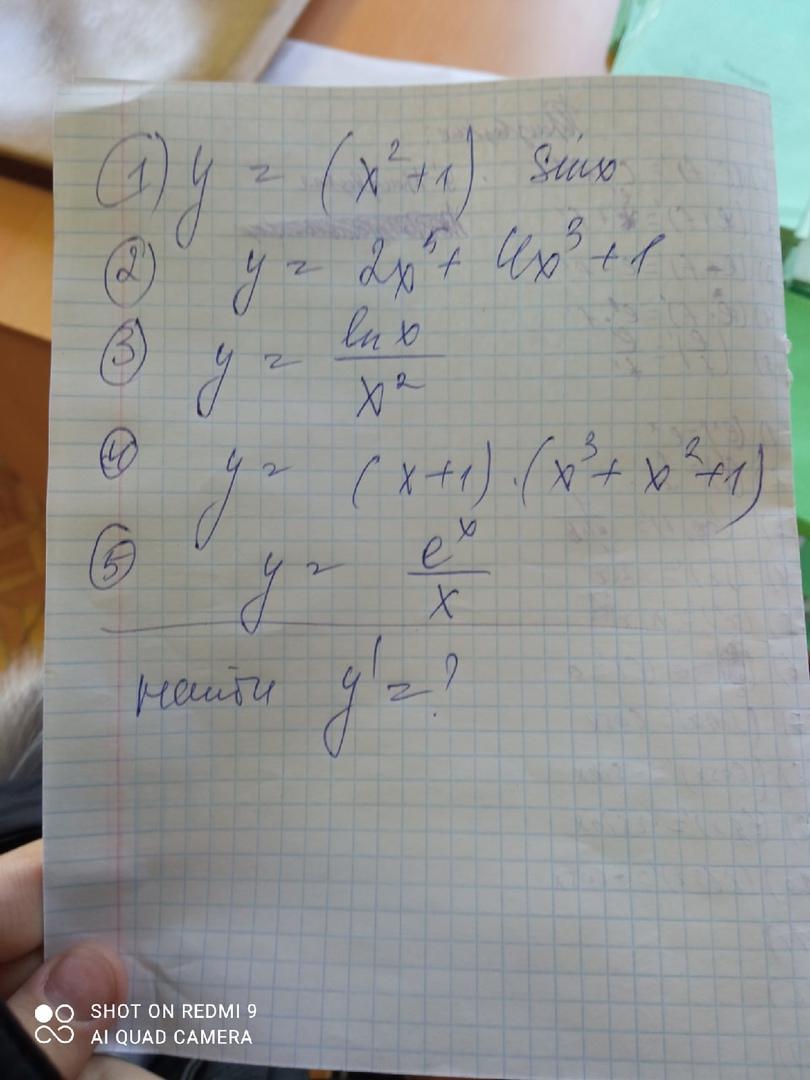 ① y = (x²+1) · sinx
② y = 2x⁵ + 4x³ + 1
③ y = lnx / x²
④ y = (x+1) · (x³ + x² + 1)
⑤ y = eˣ / x
найти y' = ?
SHOT ON REDMI 9
AI QUAD CAMERA